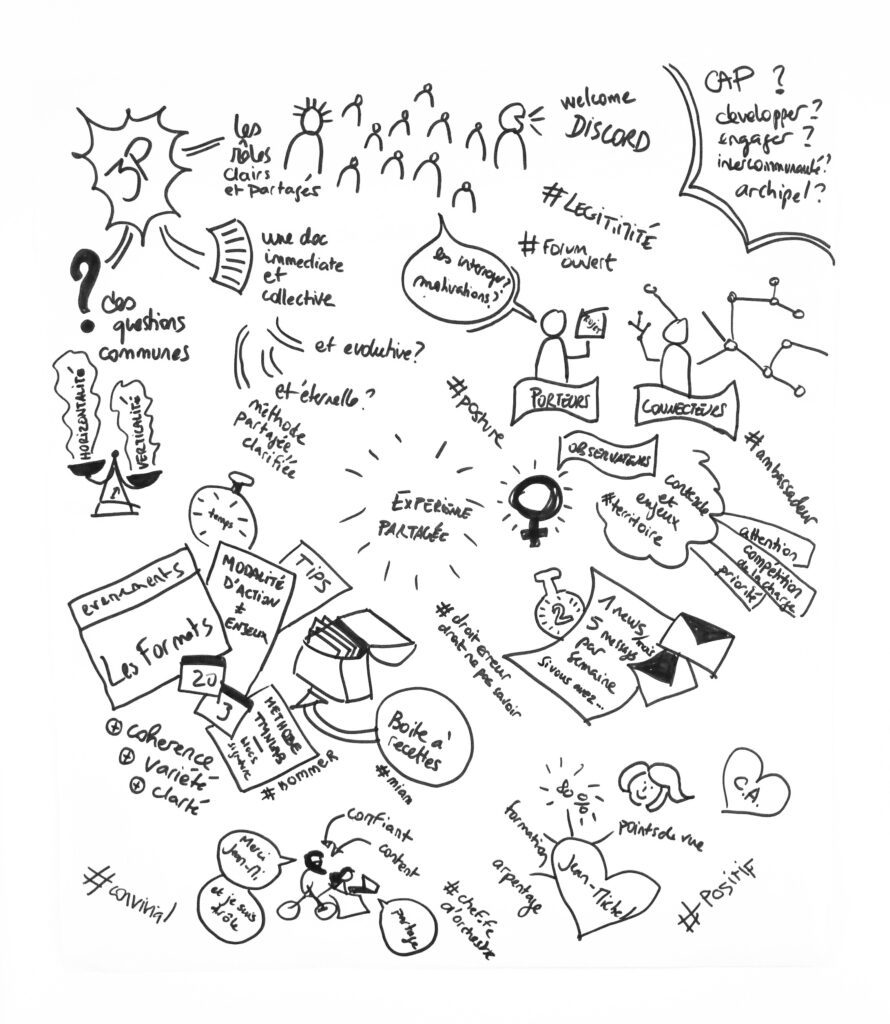 3P
les
rôles
clairs
et partagés
welcome
DISCORD
CAP ?
developper ?
engager ?
intercommunauté ?
archipel ?
#LEGITIMITÉ
#Forum
ouvert
une doc
immediate
et
collective
les interroge ?
motivations ?
?
des
questions
communes
et evolutive ?
et éternelle ?
méthode
partagée
clarifiée
HORIZONTALITÉ
VERTICALITÉ
PROJET
PORTEURS
CONNECTEURS
OBSERVATEURS
#posture
#ambassadeur
contexte
et
enjeux
#territoire
attention
compétition
de la charte
priorité
EXPERIENCE
PARTAGÉE
temps
evenements
Les Formats
MODALITÉ
D'ACTION
±
ENJEUX
TIPS
20
3
METHODE
TMNLAB
=
blocs
signature
#BOMMER
Boite à
recettes
#miam
⊕ coherence
⊕ variété
⊕ clarté
#droit erreur
droit ne pas savoir
2
1 news/mois
5 messages
par
semaine
si vous avez...
80%
formation
arpentage
Jean-Michel
points de vue
C.A.
#POSITIF
#convivial
Merci
Jean-Mi
et je suis
drôle
confiant
content
partage
#cheffe
d'orchestre